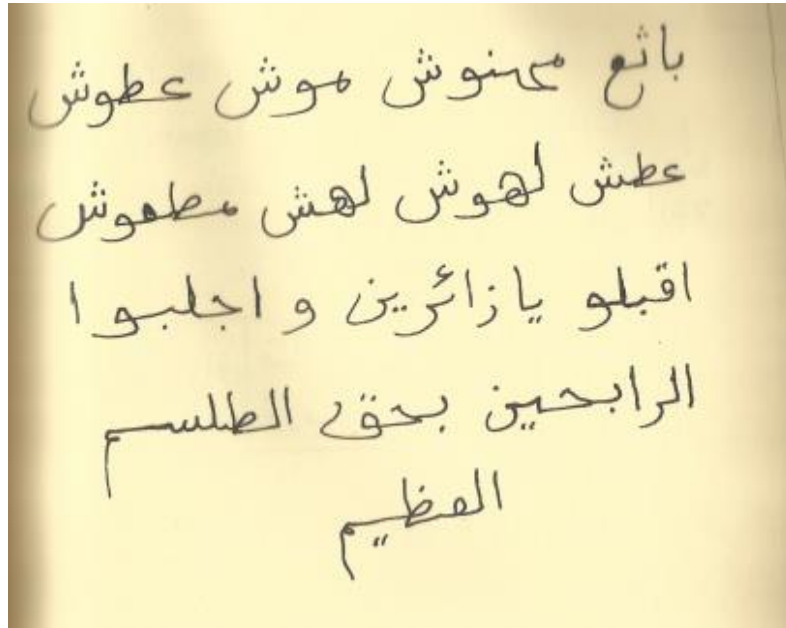 بائع مهنوش موش عطوش
عطش لهوش لهش مطهوش
اقبلو يا زائرين و اجلبوا
الرابحين بحق الطلسم
العظيم